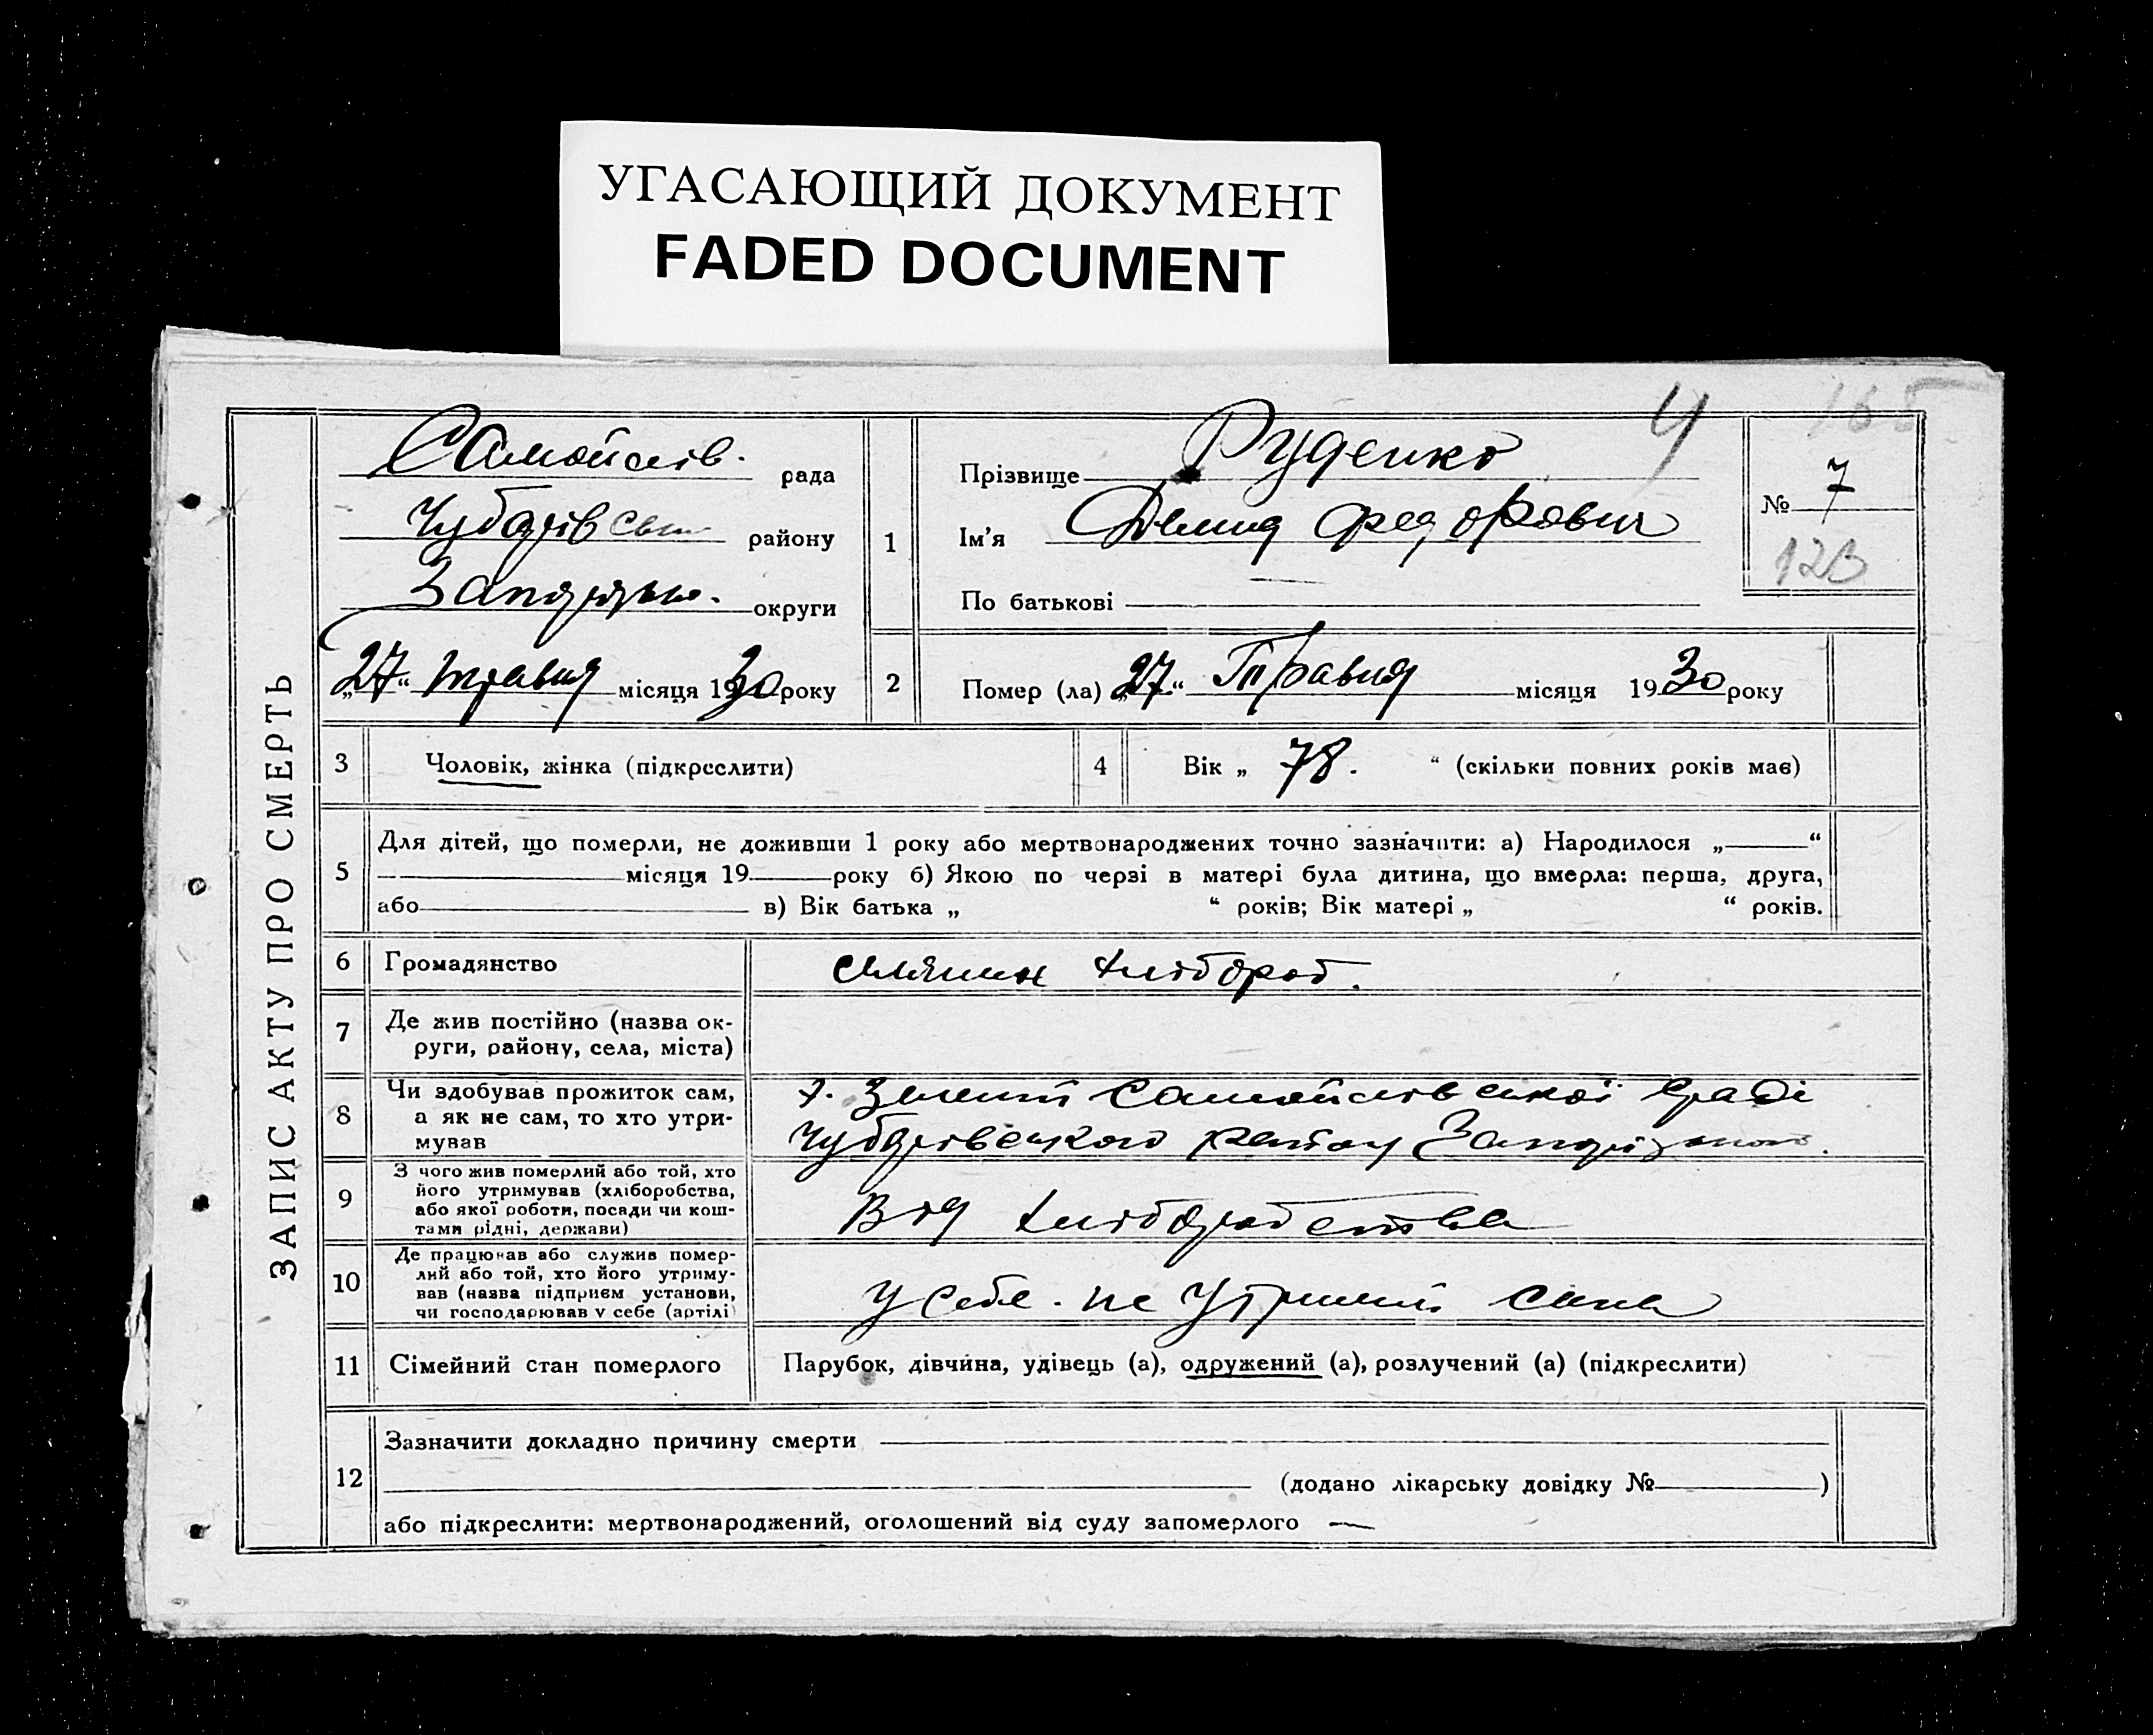 УГАСАЮЩИЙ ДОКУМЕНТ
FADED DOCUMENT
4 165
ЗАПИС АКТУ ПРО СМЕРТЬ
Самойлів. рада
Чубарівськ району
Запорізьк. округи
„27“ травня місяця 1930 року
1
Прізвище Руденко
Ім'я Демид Федорович
По батькові —
№ 7
123
2
Помер (ла) „27“ Травня місяця 1930 року
3 Чоловік, жінка (підкреслити)
4 Вік „ 78. “ (скільки повних років має)
5
Для дітей, що померли, не доживши 1 року або мертвонароджених точно зазначити: а) Народилося „ “
місяця 19 року б) Якою по черзі в матері була дитина, що вмерла: перша, друга,
або в) Вік батька „ “ років; Вік матері „ “ років.
6 Громадянство селянин хлібороб.
7 Де жив постійно (назва ок-
руги, району, села, міста)
8 Чи здобував прожиток сам,
а як не сам, то хто утри-
мував
х. Зелений Самойлівської Ради
Чубарівського району Запорізького.
9 З чого жив померлий або той, хто
його утримував (хліборобства,
або якої роботи, посади чи кош-
тами рідні, держави)
Від хліборобства
10 Де працював або служив помер-
лий або той, хто його утриму-
вав (назва підприєм установи,
чи господарював у себе (артілі)
У себе. на Утриманні сина
11 Сімейний стан померлого Парубок, дівчина, удівець (а), одружений (а), розлучений (а) (підкреслити)
12
Зазначити докладно причину смерти
(додано лікарську довідку № )
або підкреслити: мертвонароджений, оголошений від суду запомерлого —